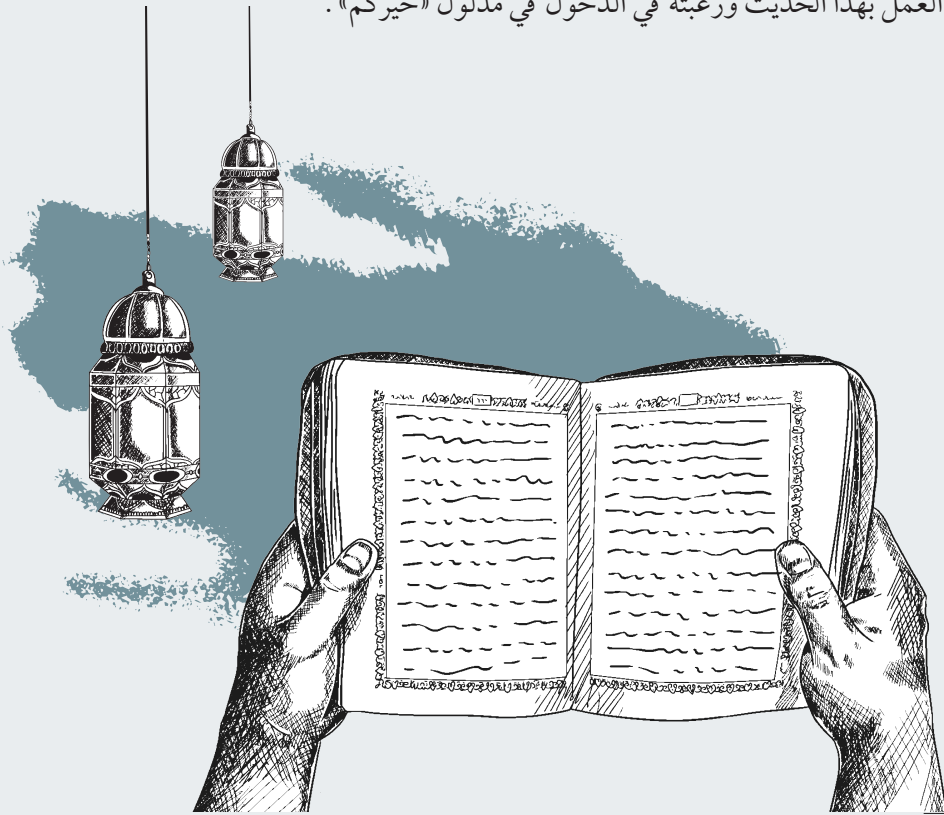 العمل بهذا الحديث ورغبته في الدخول في مدلول «خيركم» .